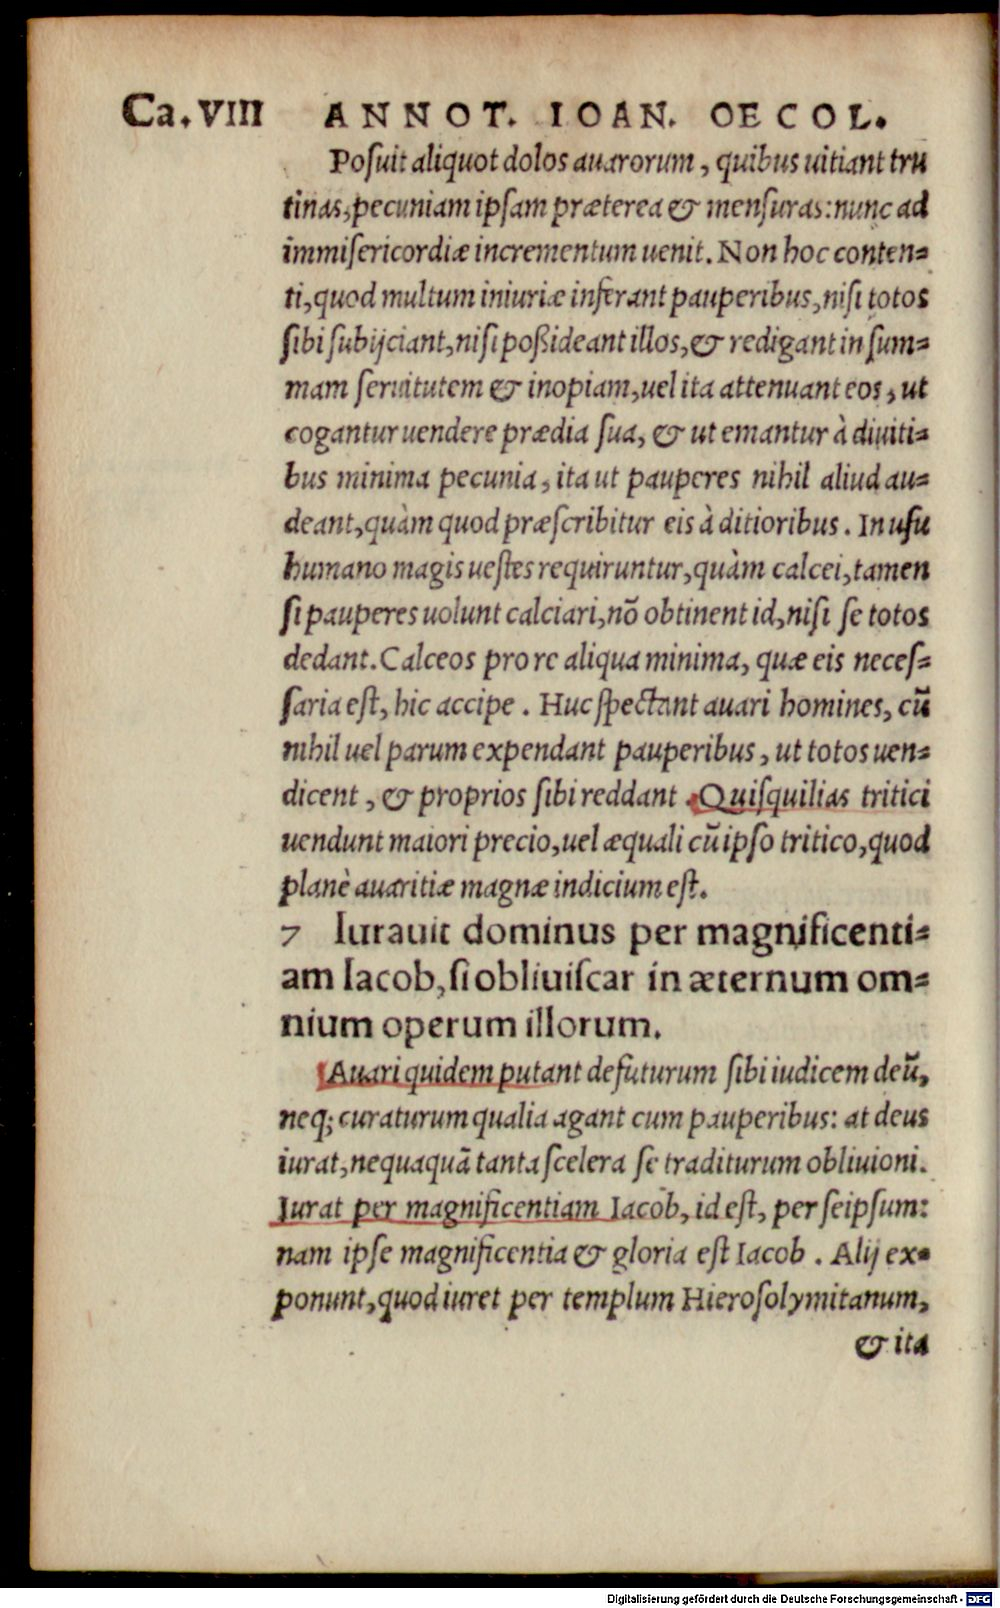 Ca. VIII ANNOT. IOAN. OECOL.
Posuit aliquot dolos auarorum, quibus uitiant tru
tinas, pecuniam ipsam præterea & mensuras: nunc ad
immisericordiæ incrementum uenit. Non hoc conten=
ti, quod multum iniuriæ inferant pauperibus, nisi totos
sibi subijciant, nisi poßideant illos, & redigant in sum=
mam seruitutem & inopiam, uel ita attenuant eos, ut
cogantur uendere prædia sua, & ut emantur à diuiti=
bus minima pecunia, ita ut pauperes nihil aliud au=
deant, quàm quod præscribitur eis à ditioribus. In usu
humano magis uestes requiruntur, quàm calcei, tamen
si pauperes uolunt calciari, nõ obtinent id, nisi se totos
dedant. Calceos pro re aliqua minima, quæ eis neces=
saria est, hic accipe. Huc spectant auari homines, cũ
nihil uel parum expendant pauperibus, ut totos uen=
dicent, & proprios sibi reddant. Quisquilias tritici
uendunt maiori precio, uel æquali cũ ipso tritico, quod
planè auaritiæ magnæ indicium est.
7 Iurauit dominus per magnificenti=
am Iacob, si obliuiscar in æternum om=
nium operum illorum.
Auari quidem putant defuturum sibi iudicem deũ,
neq; curaturum qualia agant cum pauperibus: at deus
iurat, nequaquã tanta scelera se traditurum obliuioni.
Iurat per magnificentiam Iacob, id est, per seipsum:
nam ipse magnificentia & gloria est Iacob. Alij ex=
ponunt, quod iuret per templum Hierosolymitanum,
& ita
Digitalisierung gefördert durch die Deutsche Forschungsgemeinschaft - DFG